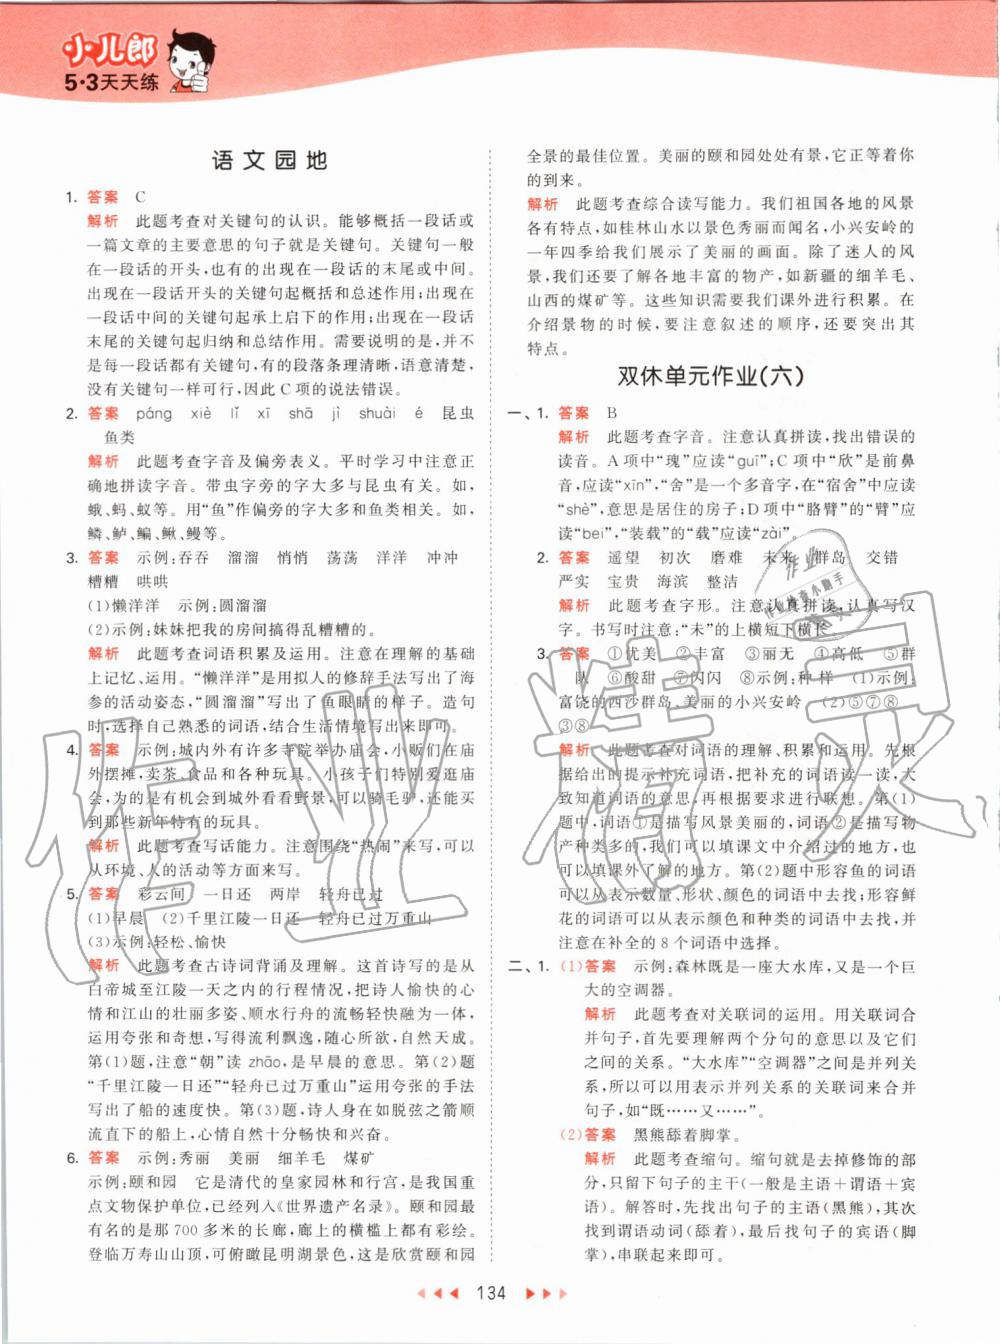 小儿郎
5·3天天练
语文园地
1. 答案 C
解析 此题考查对关键句的认识。能够概括一段话或
一篇文章的主要意思的句子就是关键句。关键句一般
在一段话的开头,也有的出现在一段话的末尾或中间。
出现在一段话开头的关键句起概括和总述作用;出现在
一段话中间的关键句起承上启下的作用;出现在一段话
末尾的关键句起归纳和总结作用。需要说明的是,并不
是每一段话都有关键句,有的段落条理清晰,语意清楚,
没有关键句一样可行,因此C项的说法错误。
2. 答案 páng xiè lǐ xī shā jì shuài é 昆虫
鱼类
解析 此题考查字音及偏旁表义。平时学习中注意正
确地拼读字音。带虫字旁的字大多与昆虫有关。如,
蛾、蚂、蚁等。用“鱼”作偏旁的字大多和鱼类相关。如,
鳞、鲈、鳊、鳅、鳗等。
3. 答案 示例:吞吞 溜溜 悄悄 荡荡 洋洋 冲冲
糟糟 哄哄
(1)懒洋洋 示例:圆溜溜
(2)示例:妹妹把我的房间搞得乱糟糟的。
解析 此题考查词语积累及运用。注意在理解的基础
上记忆、运用。“懒洋洋”是用拟人的修辞手法写出了海
参的活动姿态,“圆溜溜”写出了鱼眼睛的样子。造句
时,选择自己熟悉的词语,结合生活情境写出来即可。
4. 答案 示例:城内外有许多寺院举办庙会,小贩们在庙
外摆摊,卖茶、食品和各种玩具。小孩子们特别爱逛庙
会,为的是有机会到城外看看野景,可以骑毛驴,还能买
到那些新年特有的玩具。
解析 此题考查写话能力。注意围绕“热闹”来写,可以
从环境、人的活动等方面来写。
5. 答案 彩云间 一日还 两岸 轻舟已过
(1)早晨 (2)千里江陵一日还 轻舟已过万重山
(3)示例:轻松、愉快
解析 此题考查古诗词背诵及理解。这首诗写的是从
白帝城至江陵一天之内的行程情况,把诗人愉快的心
情和江山的壮丽多姿、顺水行舟的流畅轻快融为一体,
运用夸张和奇想,写得流利飘逸,随心所欲,自然天成。
第(1)题,注意“朝”读 zhāo,是早晨的意思。第(2)题
“千里江陵一日还”“轻舟已过万重山”运用夸张的手法
写出了船的速度快。第(3)题,诗人身在如脱弦之箭顺
流直下的船上,心情自然十分畅快和兴奋。
6. 答案 示例:秀丽 美丽 细羊毛 煤矿
示例:颐和园 它是清代的皇家园林和行宫,是我国重
点文物保护单位,已经列入《世界遗产名录》。颐和园最
有名的是那700多米的长廊,廊上的横槛上都有彩绘。
登临万寿山山顶,可俯瞰昆明湖景色,这是欣赏颐和园
全景的最佳位置。美丽的颐和园处处有景,它正等着你
的到来。
解析 此题考查综合读写能力。我们祖国各地的风景
各有特点,如桂林山水以景色秀丽而闻名,小兴安岭的
一年四季给我们展示了美丽的画面。除了迷人的风
景,我们还要了解各地丰富的物产,如新疆的细羊毛、
山西的煤矿等。这些知识需要我们课外进行积累。在
介绍景物的时候,要注意叙述的顺序,还要突出其
特点。
双休单元作业(六)
一、1. 答案 B
解析 此题考查字音。注意认真拼读,找出错误的
读音。A项中“瑰”应读“guī”;C项中“欣”是前鼻
音,应读“xīn”,“舍”是一个多音字,在“宿舍”中应读
“shè”,意思是居住的房子;D项中“胳臂”的“臂”应
读“bei”,“装载”的“载”应读“zài”。
2. 答案 遥望 初次 磨难 未来 群岛 交错
严实 宝贵 海滨 整洁
解析 此题考查字形。注意认真拼读,认真写汉
字。书写时注意:“未”的上横短下横长。
3. 答案 ①优美 ②丰富 ③丽无 ④高低 ⑤群
队 ⑥酸甜 ⑦闪闪 ⑧示例:种样 (1)示例:
富饶的西沙群岛 美丽的小兴安岭 (2)⑤⑦⑧
③⑧
解析 此题考查对词语的理解、积累和运用。先根
据给出的提示补充词语,把补充的词语读一读,大
致知道词语的意思,再根据要求进行联想。第(1)
题中,词语①是描写风景美丽的,词语②是描写物
产种类多的,我们可以填课文中介绍过的地方,也
可以填课外了解的地方。第(2)题中形容鱼的词语
可以从表示数量、形状、颜色的词语中去找;形容鲜
花的词语可以从表示颜色和种类的词语中去找,并
注意在补全的8个词语中选择。
二、1. (1)答案 示例:森林既是一座大水库,又是一个巨
大的空调器。
解析 此题考查对关联词的运用。用关联词合
并句子,首先要理解两个分句的意思以及它们
之间的关系。“大水库”“空调器”之间是并列关
系,所以可以用表示并列关系的关联词来合并
句子,如“既……又……”。
(2)答案 黑熊舔着脚掌。
解析 此题考查缩句。缩句就是去掉修饰的部
分,只留下句子的主干(一般是主语+谓语+宾
语)。解答时,先找出句子的主语(黑熊),其次
找到谓语动词(舔着),最后找句子的宾语(脚
掌),串联起来即可。
134
作业精灵
作业
作业检查小助手